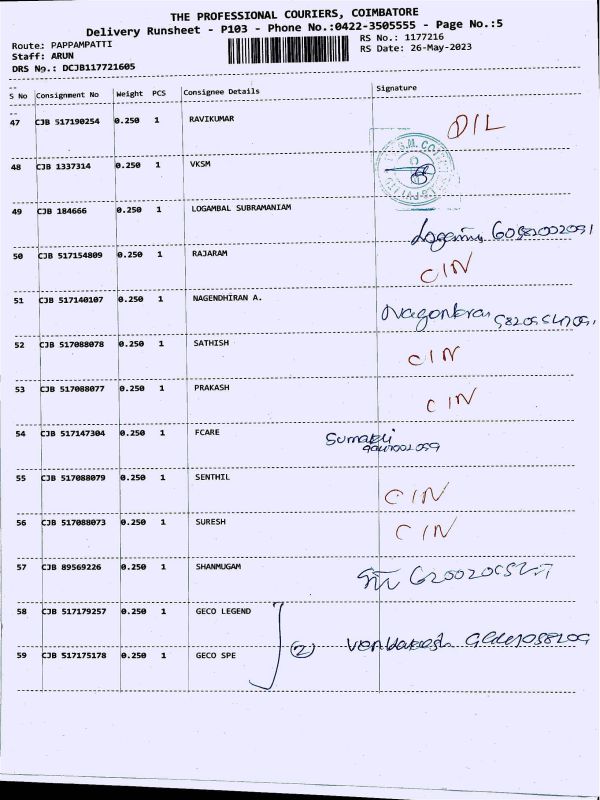 THE PROFESSIONAL COURIERS, COIMBATORE
Delivery Runsheet - P103 - Phone No.:0422-3505555 - Page No.:5
Route: PAPPAMPATTI RS No.: 1177216
Staff: ARUN RS Date: 26-May-2023
DRS No.: DCJB117721605
S No Consignment No Weight PCS Consignee Details Signature
47 CJB 517190254 0.250 1 RAVIKUMAR D/L
48 CJB 1337314 0.250 1 VKSM
49 CJB 184666 0.250 1 LOGAMBAL SUBRAMANIAM
50 CJB 517154809 0.250 1 RAJARAM C/N
51 CJB 517140107 0.250 1 NAGENDHIRAN A.
52 CJB 517088078 0.250 1 SATHISH C/N
53 CJB 517088077 0.250 1 PRAKASH C/N
54 CJB 517147304 0.250 1 FCARE
55 CJB 517088079 0.250 1 SENTHIL C/N
56 CJB 517088073 0.250 1 SURESH C/N
57 CJB 89569226 0.250 1 SHANMUGAM
58 CJB 517179257 0.250 1 GECO LEGEND
2
59 CJB 517175178 0.250 1 GECO SPE